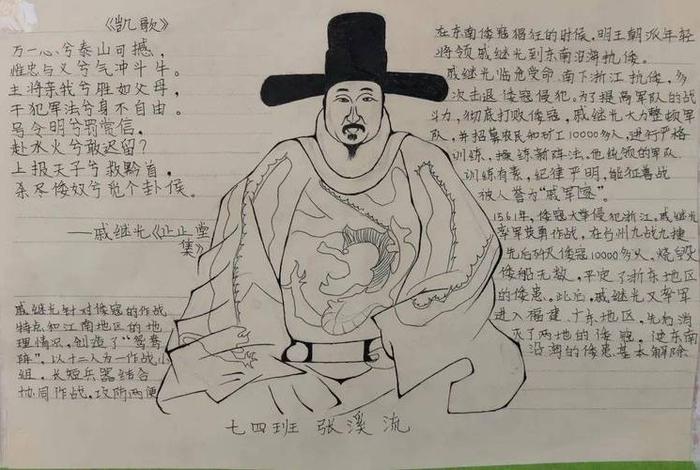 《凯歌》
万一心兮泰山可撼,
惟忠与义兮气冲斗牛。
主将亲我兮胜如父母,
干犯军法兮身不自由。
号令明兮罚赏信,
赴水火兮敢迟留?
上报天子兮救黔首,
杀尽倭奴兮觅个封侯。
——戚继光《止止堂
集》
戚继光针对倭寇的作战
特点和江南地区的地
理情况,创造了“鸳鸯
阵”。以十二人为一作战小
组,长短兵器结合
协同作战,攻防两便
在东南倭寇猖狂的时候,明王朝派年轻
将领戚继光到东南沿海抗倭。
戚继光临危受命,南下浙江抗倭,多
次击退倭寇侵犯。为了提高军队的战
斗力,彻底打败倭寇,戚继光大力整顿军
队,并招募农民和矿工10000多人,进行严格
训练,操练新阵法。他统领的军队
训练有素,纪律严明,能征善战
被人誉为“戚军家”。
1561年,倭寇大举侵犯浙江。戚继光
率军英勇作战,在台州九战九捷
先后歼灭倭寇10000多人,烧毁
倭船无数,平定了浙东地区
的倭患。此后,戚继光又率军
进入福建、广东地区,先后消
灭了两地的倭寇,使东南
沿海的倭患基本解除
七四班 张溪流